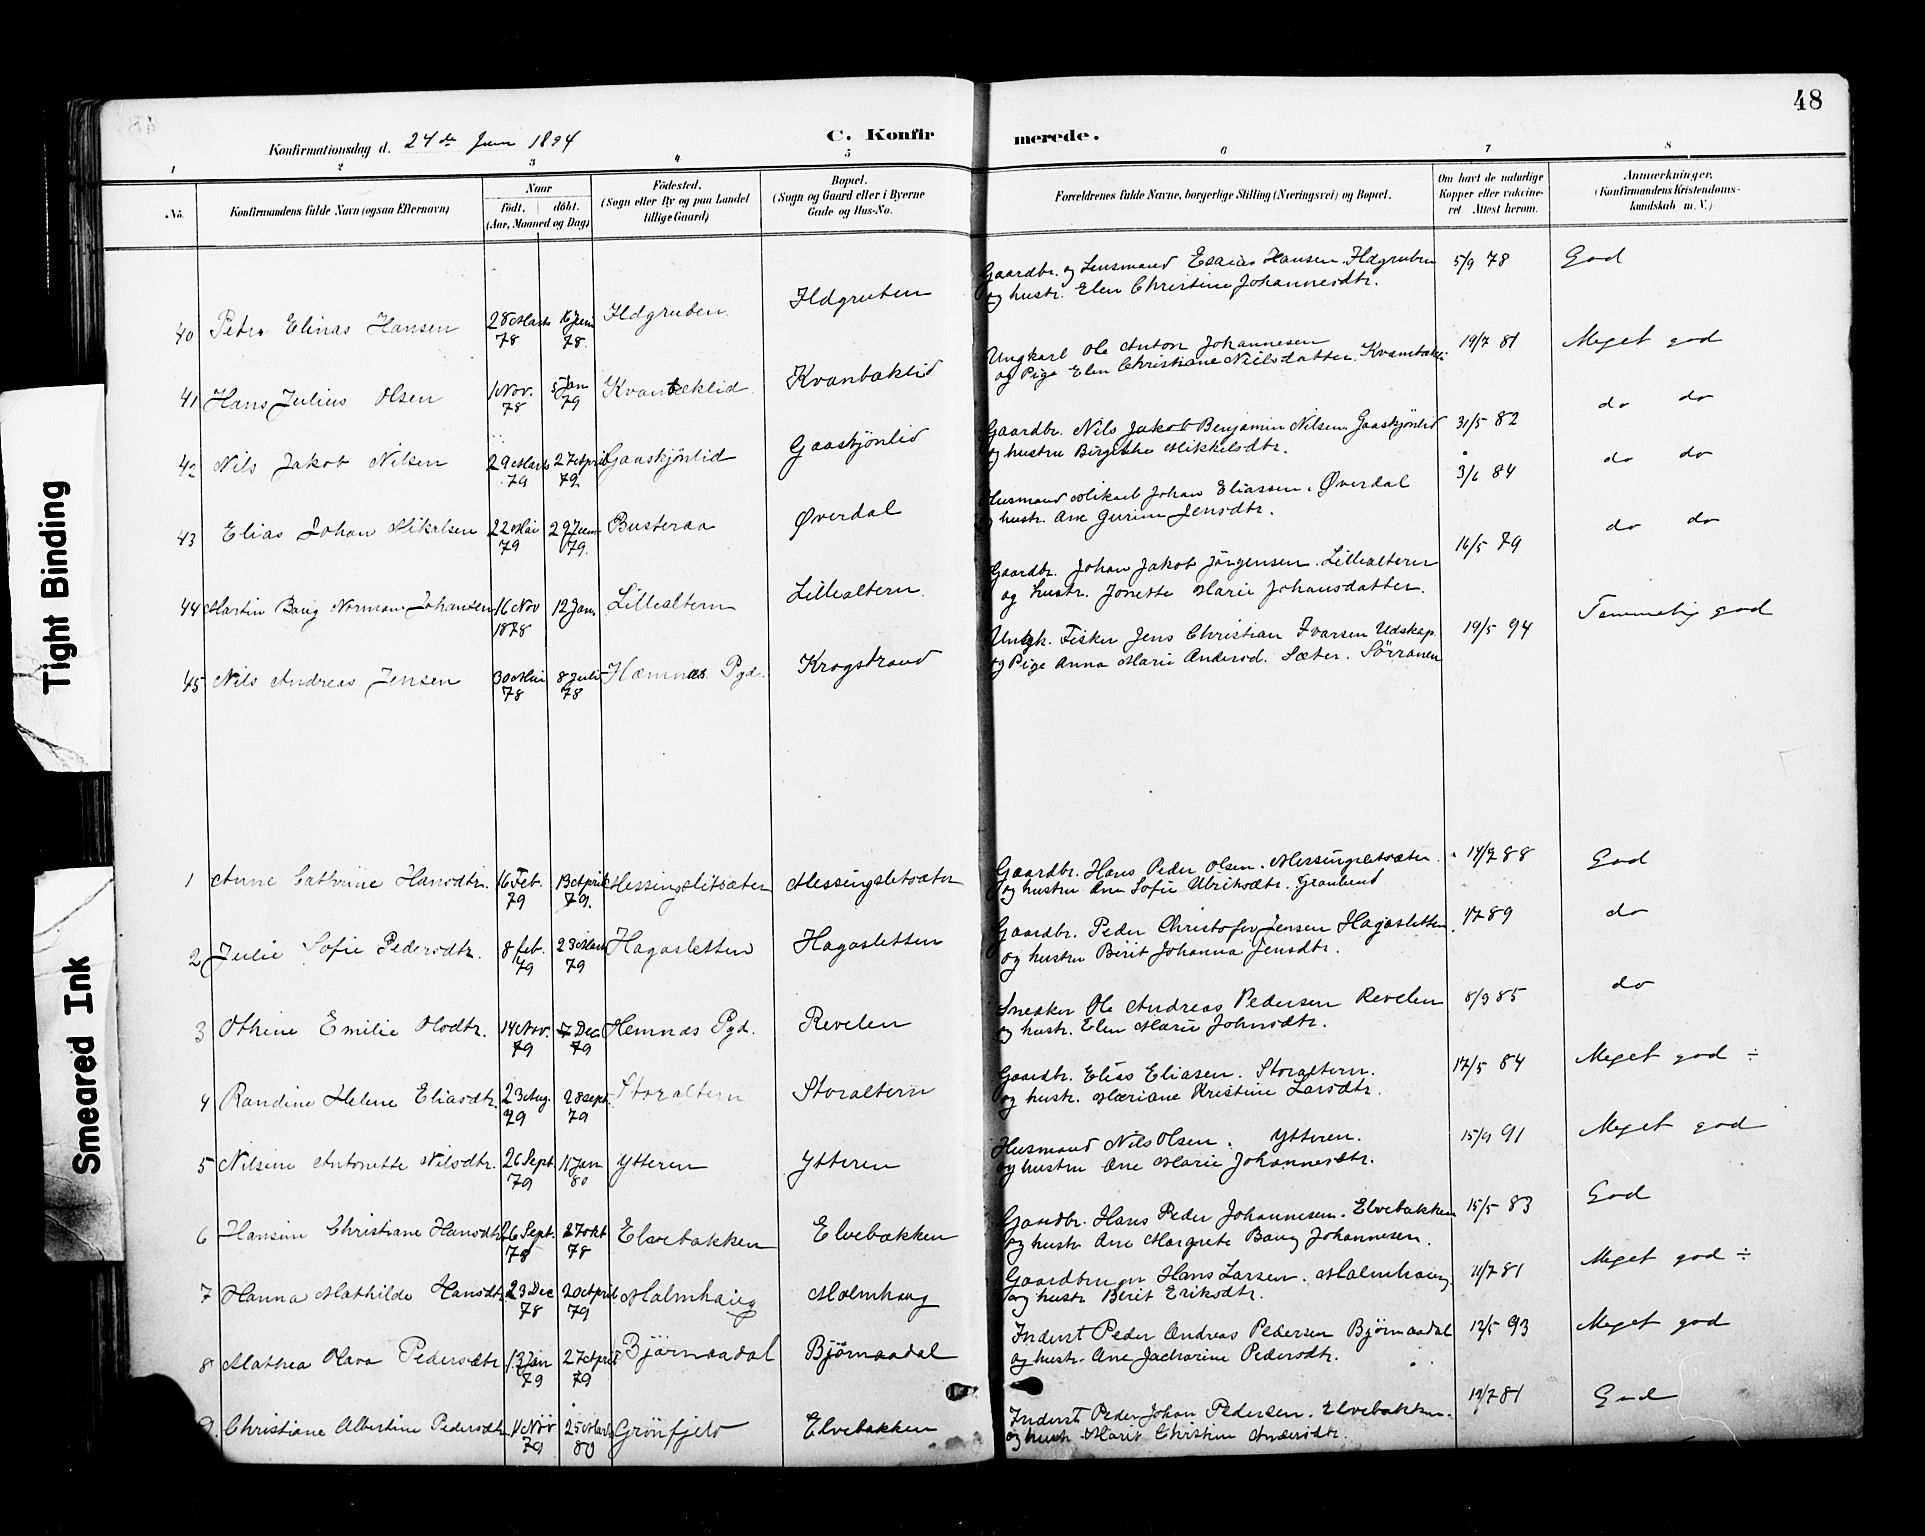 48
Konfirmationsdag d. 24de Juni 1894 C. Konfirmerede.
1 2 3 4 5 6 7 8
No.
Konfirmandens fulde Navn (ogsaa Efternavn)
Naar
Födt. döbt.
(Aar, Maaned og Dag)
Födested.
(Sogn eller By og paa Landet
tillige Gaard)
Bopæl.
(Sogn og Gaard eller i Byerne
Gade og Hus-No.
Forældrenes fulde Navne, borgerlige Stilling (Næringsvei) og Bopæl.
Om havt de naturlige
Kopper eller vakcine-
ret Attest herom.
Anmærkninger.
(Konfirmandens Kristendoms-
kundskab m. V.)
40 Petra Elinas Hansen 28 Marts 78 16 Juni 78. Ildgruben Ildgruben Gaardbr. og Lensmand Esaias Hansen. Ildgruben 5/9 78 God
og hustr. Elen Christine Johannesdtr.
41 Hans Julius Olsen 1 Nov. 78 5 Jan 79 Kvanbæklid Kvanbæklid Ungkarl Ole Anton Johannesen 19/7 81 Meget god
og Pige Elen Christiane Nielsdatter. Kvanbækli
42 Nils Jakob Nilsen 29 Marts 79 27 April 79 Gaaskjönlid Gaaskjönlid Gaardbr. Nils Jakob Benjamin Nilsen Gaaskjönlid 31/5 82 do do
og hustru Birgithe Mikkelsdtr.
43 Elias Johan Mikalsen 22 Mai 79 29 Juni 79. Busteraa Øverdal Husmand Mikael Johan Eliassen. Øverdal 3/6 84 do do
og hustr. Ane Gurine Jensdtr.
44 Martin Baug Norman Johansen 16 Nov 1878 12 Jan. Lillealtern Lillealtern. Gaardbr. Johan Jakob Jörgensen. Lillealtern 16/5 79 do do
og hustr. Jonette Marie Johansdatter.
45 Nils Andreas Jensen 30 Mai 78 8 Juli 78 Hæmnæs Pgd. Krogstrand Ungk. Fisker Jens Christian Ivarsen Udskap. 19/5 94 Temmelig god
og Pige Anna Marie Andersd. Sæter. Sörranen
1 Anne Cathrine Hansdtr. 16 Feb. 79 13 April 79. Messingsletsæter Messingsletsæter Gaardbr. Hans Peder Olsen. Messingsletsæter. 14/7 88 God
og hustru Ane Sofie Ulriksdtr. Granlund
2 Julie Sofie Pedersdtr. 8 feb. 79 23 Mars 79 Hagasletten Hagasletten Gaardbr. Peder Christofer Jensen Hagasletten. do
og hustru Berit Johanna Jensdtr.
3 Othine Emilie Olsdtr. 14 Nov. 79 7 Dec. 79 Hemnæs Pgd. Revelen Snedker Ole Andreas Pedersen Revelen 8/9 85 do
og hustr. Elen Marie Johnsdtr.
4 Randine Helene Eliasdtr. 23 Aug. 79 28 sept. 79 Storaltern Storaltern Gaardbr. Elias Eliasen. Storaltern. 17/5 84 Meget god ÷
og hustr. Mariane Kristine Larsdtr.
5 Nilsine Antonette Nilsdtr. 26 Sept 79 11 Jan 80 Ytteren Ytteren Husmand Nils Olsen. Ytteren. 15/9 91 Meget god
og hustru Ane Marie Johannesdtr.
6 Hansine Christiane Hansdtr 26 Sept. 78 27 okt 78 Elvebakken Elvebakken Gaardbr. Hans Peder Johannesen. Elvebakken 15/5 83 God
og hustr. Ane Margrete Baug Johannesen.
7 Hanna Mathilde Hansdtr 23 Dec 78 20 April 79 Malmhaug Malmhaug Gaardbruger Hans Larsen. Malmhaug. 11/7 81 Meget god ÷
og hustr Berit Eriksdtr.
8 Mathea Olava Pedersdtr 13 Jan 79 27 April 79 Bjørnaadal Bjørnaadal Inderst Peder Andreas Pedersen Bjørnaadal 12/5 93 Meget god
og hustr. Ane Jacharine Pedersdtr.
9. Christiane Albertine Pedersdtr 11 Nov 79 25 Marts 80 Grönfjeld Elvebakken Inderst Peder Johan Pedersen. Elvebakken. 19/7 81 God
og hustr. Marit Christine Andersdtr.
Tight Binding
Smeared Ink